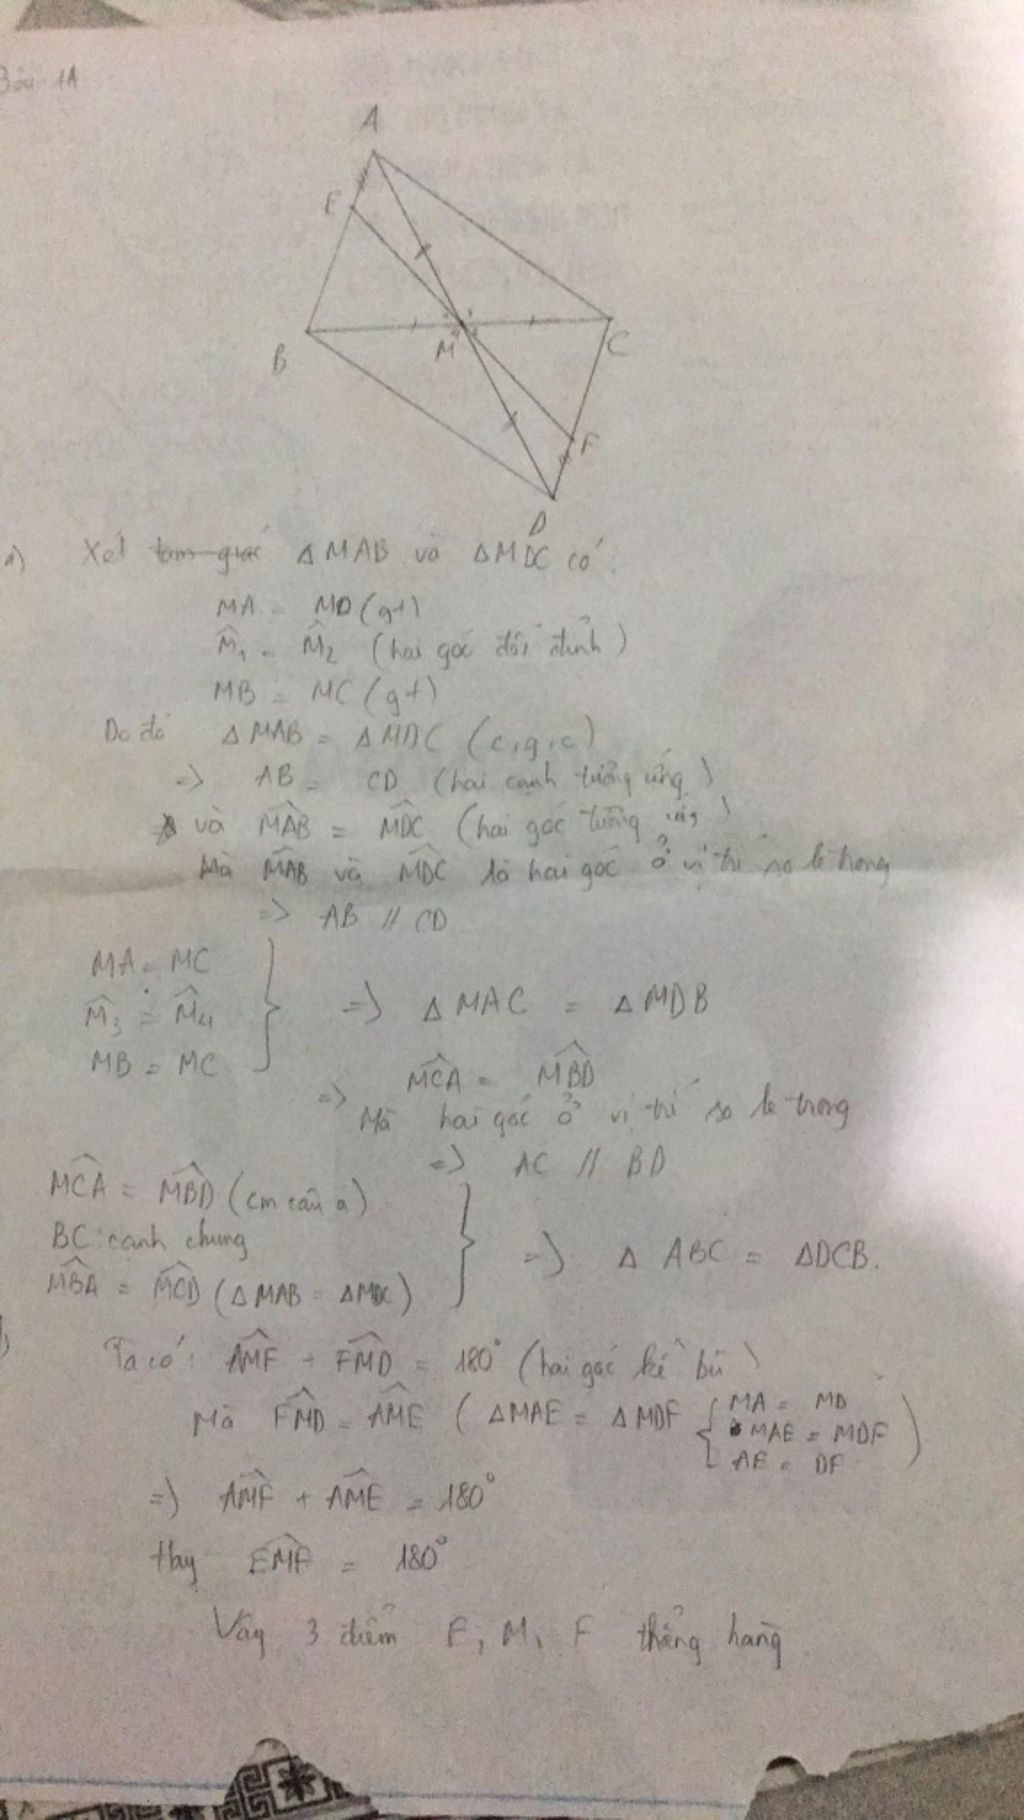 Bài 1A
A
E
B
M
C
F
D
a) Xét tam giác △MAB và △MDC có:
MA = MD (gt)
M̂₁ = M̂₂ (hai góc đối đỉnh)
MB = MC (gt)
Do đó △MAB = △MDC (c.g.c)
=> AB = CD (hai cạnh tương ứng)
và M̂AB = M̂DC (hai góc tương ứng)
Mà M̂AB và M̂DC là hai góc ở vị trí so le trong
=> AB // CD
MA = MC
M̂₃ = M̂₄
MB = MC
=> △MAC = △MDB
=> M̂CA = M̂BD
Mà hai góc ở vị trí so le trong
=> AC // BD
M̂CA = M̂BD (cm câu a)
BC: cạnh chung
M̂BA = M̂CD (△MAB = △MDC)
=> △ABC = △DCB.
Ta có: ÂMF + F̂MD = 180° (hai góc kề bù)
Mà F̂MD = ÂME (△MAE = △MDF { MA = MD
MAE = MDF
AE = DF )
=> ÂMF + ÂME = 180°
hay ÊMF = 180°
Vậy 3 điểm E, M, F thẳng hàng